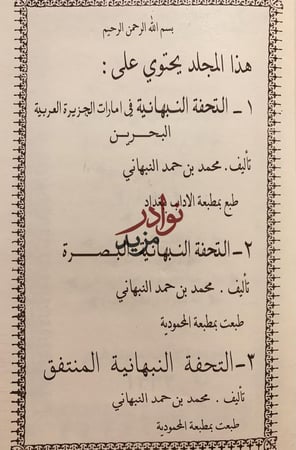 بسم الله الرحمن الرحيم
هذا المجلد يحتوي على :
١ - التحفة النبهانية في امارات الجزيرة العربية
البحرين
تأليف . محمد بن حمد النبهاني
طبع بمطبعة الاداب بغداد
نوادر
مزيد
٢- التحفة النبهانية البصرة
تأليف . محمد بن حمد النبهاني
طبعت بمطبعة المحمودية
٣- التحفة النبهانية المنتفق
تأليف . محمد بن حمد النبهاني
طبعت بمطبعة المحمودية